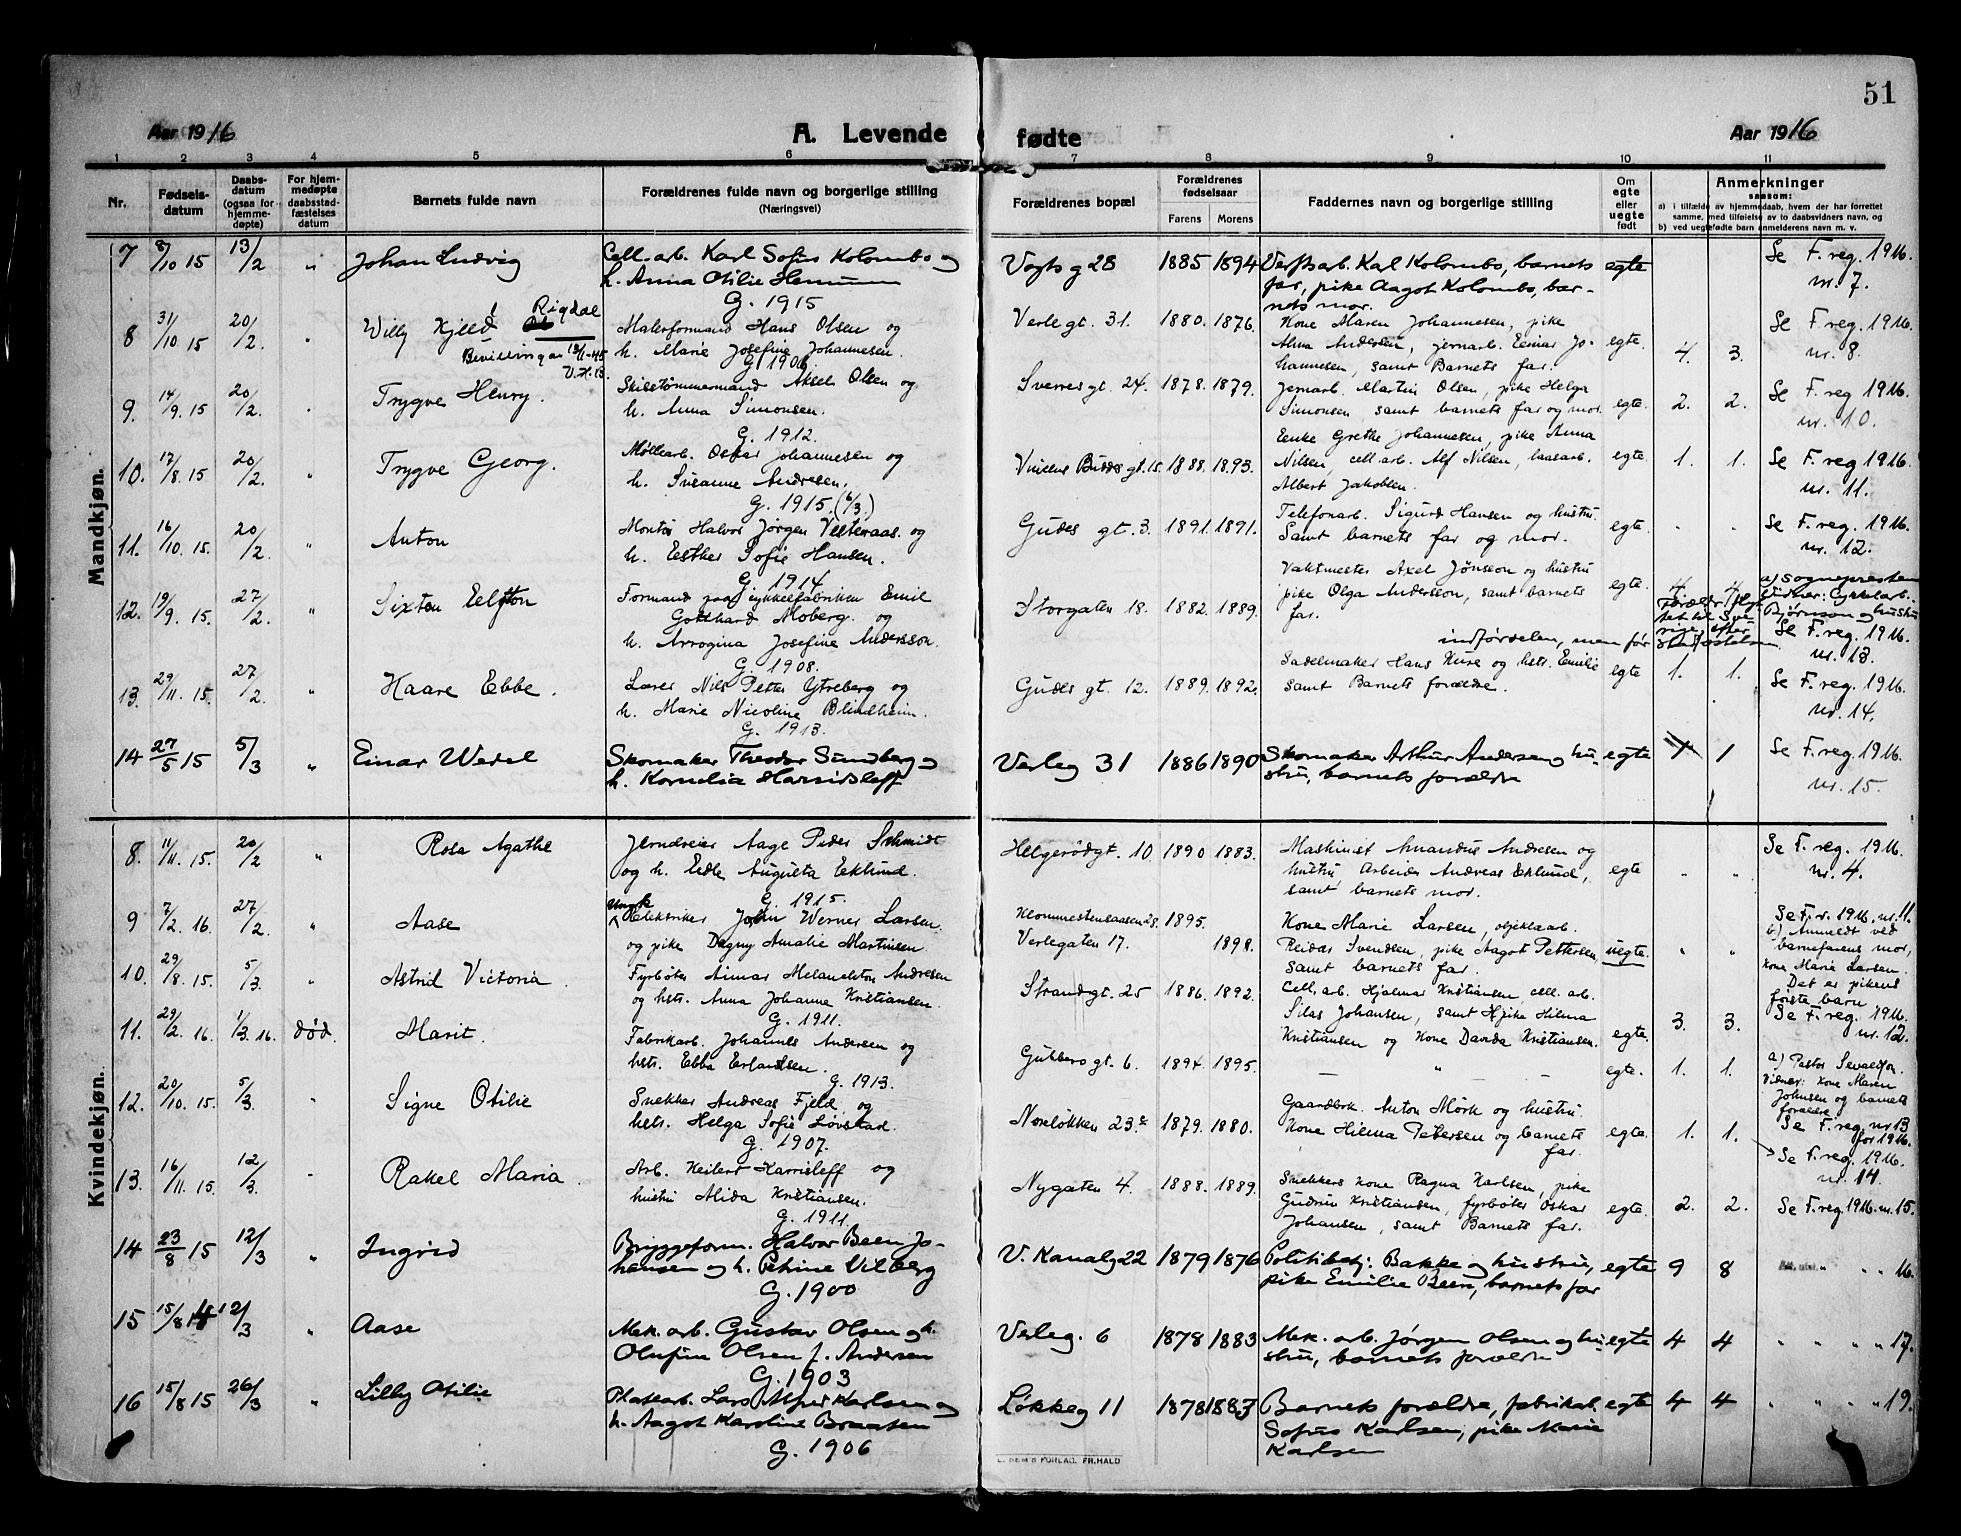 51
Aar 1916 A. Levende fødte Aar 1916
1 2 3 4 5 6 7 8 9 10 11
Nr.
Fødsels-
datum
Daabs-
datum
(ogsaa for
hjemme-
døpte)
For hjem-
medøpte
daabsstad-
fæstelses
datum
Barnets fulde navn
Forældrenes fulde navn og borgerlige stilling
(Næringsvei)
Forældrenes bopæl
Forældrenes
fødselsaar
Farens Morens
Faddernes navn og borgerlige stilling
Om
egte
eller
uegte
født
Anmerkninger
saasom:
a) i tilfælde av hjemmedaab, hvem der har forrettet
samme, med tilføielse av to daabsvidners navn, og
b) ved uegtefødte barn anmelderens navn m. v.
Mandkjøn.
7 8/10 15 13/2 " Johan Ludvig Cell. arb. Karl Sofus Kolombo og Vogts g 28 1885 1894 Verftsarb. Karl Kolombo, barnets egte Se F. reg. 1916.
h. Anna Otilie far, pike Aagot Kolombo, bar- nr. 7.
G. 1915 nets mor.
8 31/10 15 20/2. " Willy Kjell Rigdal Malerformand Hans Olsen og Verle gt. 31. 1880. 1876. Kone Maren Johannesen, pike egte. 4. 3. Se F. reg. 1916.
Bevilling av 13/1-45 h. Marie Josefine Johannesen. Alma Andersen, jernarb. Einar Jo- nr. 8.
G. 1906. hannesen, samt Barnets far.
9. 14/9. 15 20/2. " Trygve Henry. Skibstømmermand Aksel Olsen og Sverres gt. 24. 1878. 1879. Jernarb. Martin Olsen, pike Helga egte. 2. 2. Se F. reg 1916.
h. Anna Simonsen. Simonsen samt barnets far og mor. nr. 10.
G. 1912.
10. 17/8. 15 20/2. " Trygve Georg. Møllearb. Oskar Johannesen og Vincens Buddes gt. 15. 1888. 1893. Enke Grethe Johannesen, pike Anna egte. 1. 1. Se F. reg 1916.
h. Susanne Andresen. Nilsen, cell. arb. Alf Nilsen, laasarb. nr. 11.
G. 1915. (6/3.) Albert Jakobsen.
11. 16/10. 15. 20/2. " Anton Montør Halvor Jørgen Vetteraas. og Gudes gt. 3. 1891. 1891. Telefonarb. Sigurd Hansen og hustru. egte " " Se F. reg. 1916.
h. Esther Sofie Hansen. Samt barnets far og mor. nr. 12.
G. 1914
12. 19/9. 15. 27/2. " Sixten Formand paa Cykkelfabriken Emil Storgaten 18. 1882. 1889. Vaktmester Axel Jønsson og hustru egte. 4. 4. a) Sognepresten
Gotthard Moberg. og pike Olga Andersson, samt barnets Bjørnson og hustru
h. Arrogina Josefine Andersson. far. Se F. reg. 1916.
G. 1908. indførselen, men før nr. 13.
13. 29/11. 15. 27/2. " Haare Ebbe. Lærer Nils Petter Ytreberg og Gudes gt. 12. 1889. 1892. Sadelmaker Hans Kure og hstr. Emilie egte 1. 1. Se F. reg. 1916.
h. Marie Nicoline Blindheim. samt Barnets forældre. nr. 14.
G. 1913.
14 27/5 15 5/3 " Einar Wedel Skomaker Theodor Sundberg og Verleg 31 1886 1890 Skomaker Arthur Andersen og hu- egte 1 1 Se F. reg. 1916.
h. Kornelia stru, barnets forældre nr. 15.
Kvindekjøn.
8. 11/11. 15. 20/2 " Rosa Agathe Jerndreier Aage Peder Schmidt Helgerødgt. 10 1890 1883. Maskinist Amandus Andresen og egte " " Se F. reg. 1916.
og h. Edle Augusta Eklund. hustru, Arbeider Andreas Eklund, nr. 4.
G. 1915. samt barnets mor.
9 7/2. 16. 27/2. " Aase Ungk Elektriker John Werner Larsen 1895. Kone Marie Larsen, oljeklaarb. Se F. r. 1916. nr. 11.
og pike Dagny Amalie Martinsen Verlegaten 17. 1898. Reidar Svendsen, pike Aagot Pettersen, uegte. " " b) Anmeldt ved
samt barnets far. barnefarens mor,
kone Marie Larsen.
Det er pikens
første barn
10. 29/8. 15. 5/3. " Astrid Victoria. Fyrbøter Aimar Melanchton Andresen Strandgt. 25 1886. 1892. Cell. arb. Hjalmar Kristiansen, cell. arb.
og hstr. Anna Johanne Kristiansen. Silas Johansen, samt pike Hilma egte. 3. 3. Se F. reg. 1916.
G. 1911. Kristiansen og Kone Davida Kristiansen. nr. 12.
11. 29/2. 16. 1/3. 16. død. Marit. Fabrikarb. Johannes Andersen og Gubberogt. 6. 1894. 1895. — " — egte. 1. 1. a) Pastor Sevaldson.
hstr. Ebba Erlandsen. Vidner: Kone Maren
G. 1913. Johnsen og barnets
forældre
12. 20/10. 15. 5/3. " Signe Otilie Snekker Andreas Fjeld og Nordløkken 23. 1879. 1880. Gaardbrk. Anton Mørk og hustru. egte. 1. 1. Se F. reg. nr 13
hstr. Helga Sofie Løvstad. Kone Hilma Petersen og barnets for 1916.
G. 1907. far.
13. 16/11. 15. 12/3. " Rakel Maria. Arb. Keilert Harrisleff og Nygaten 4. 1888. 1889. Snekkers kone Ragna Karlsen, pike egte. 2. 2. Se F. reg. 1916.
hustru Alida Kristiansen. Gudrun Kristiansen, fyrbøter Oskar nr. 14.
G. 1911. Johansen, samt Barnets far. Se F. reg. 1916. nr. 15.
14 23/8 15 12/3 " Ingrid Bryggeform. Halvor Been Jo- V. Kanalg 22 1879 1876 Politibetj: Bakke og hustru, egte 9 8 " " 16.
hansen og h. Petrine Vilberg pike Emilie Been, barnets far
G. 1900
15 15/8 12/3 " Aase Mek. arb. Gustav Olsen og h. Verleg. 6 1878 1883 Mek. arb. Jørgen Olsen og hu- egte 4 4 " " " 17.
Olufine Olsen f. Andersen stru, barnets forældre
G. 1903
16 15/8 15 26/3 " Lilly Otilie Platearb. Lars Alfred Karlsen og Løkkeg 11 1878 1883 Barnets forældre, fabrikarb. egte 4 4 " " " 19.
h. Aagot Karoline Braaten Sofus Karlsen, pike Marie
G. 1906 Karlsen
FORLAG. FR.HALD